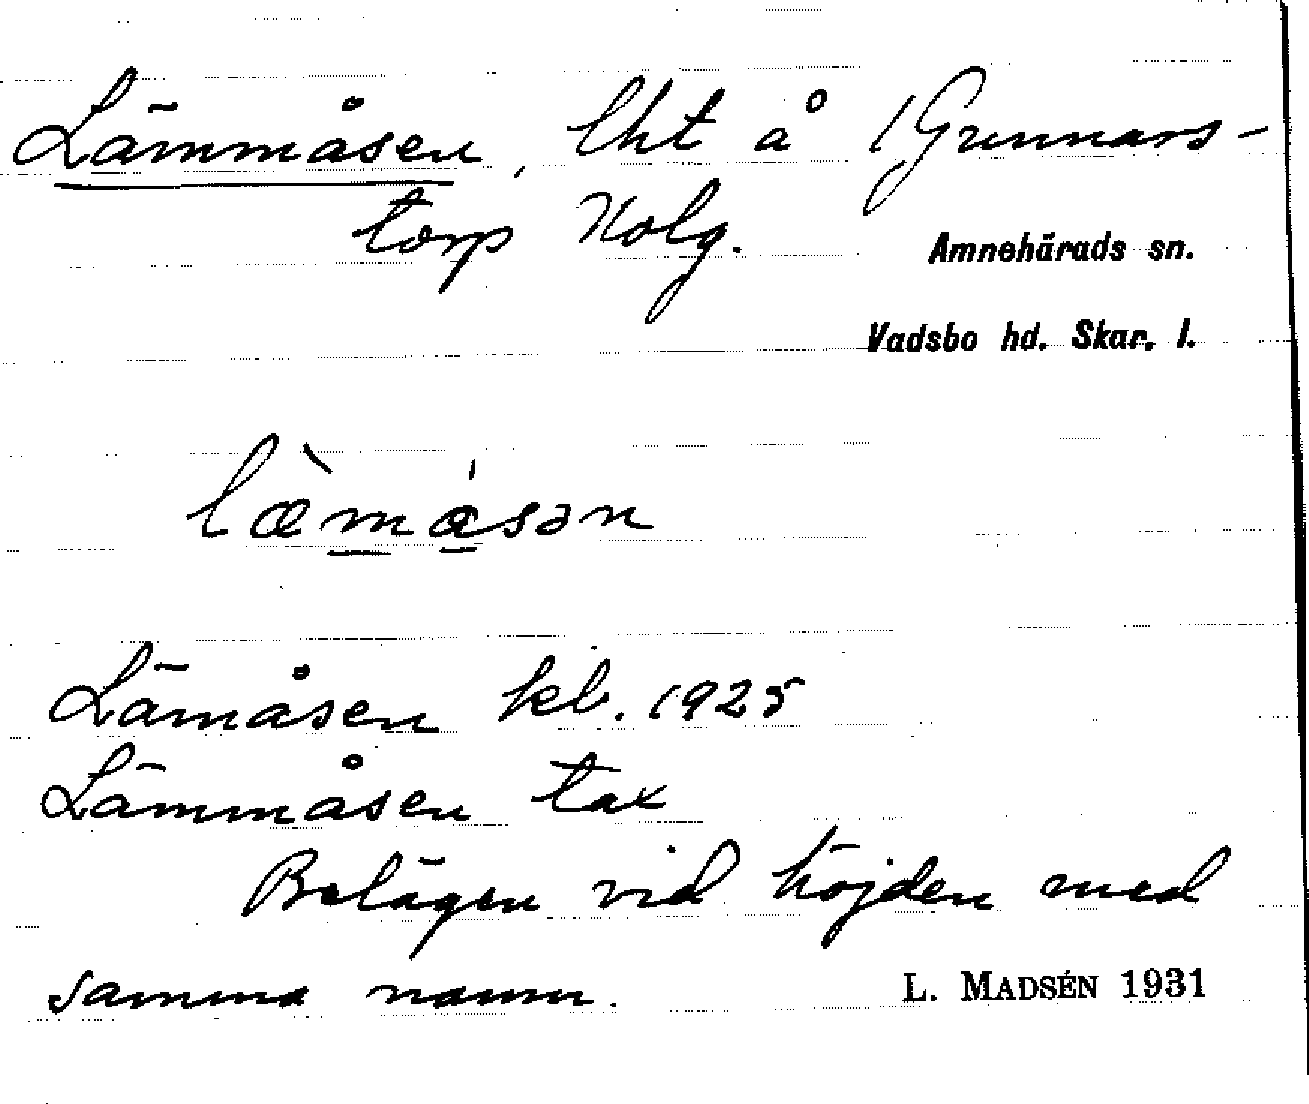 Lämmåsen, lht å 1 Gunnars-
torp Holg.
Amnehärads sn.
Vadsbo hd. Skar. l.
læ̀másən
Lämåsen kb. 1925
Lämmåsen tax
Belägen vid höjden med
samma namn.
L. MADSÉN 1931